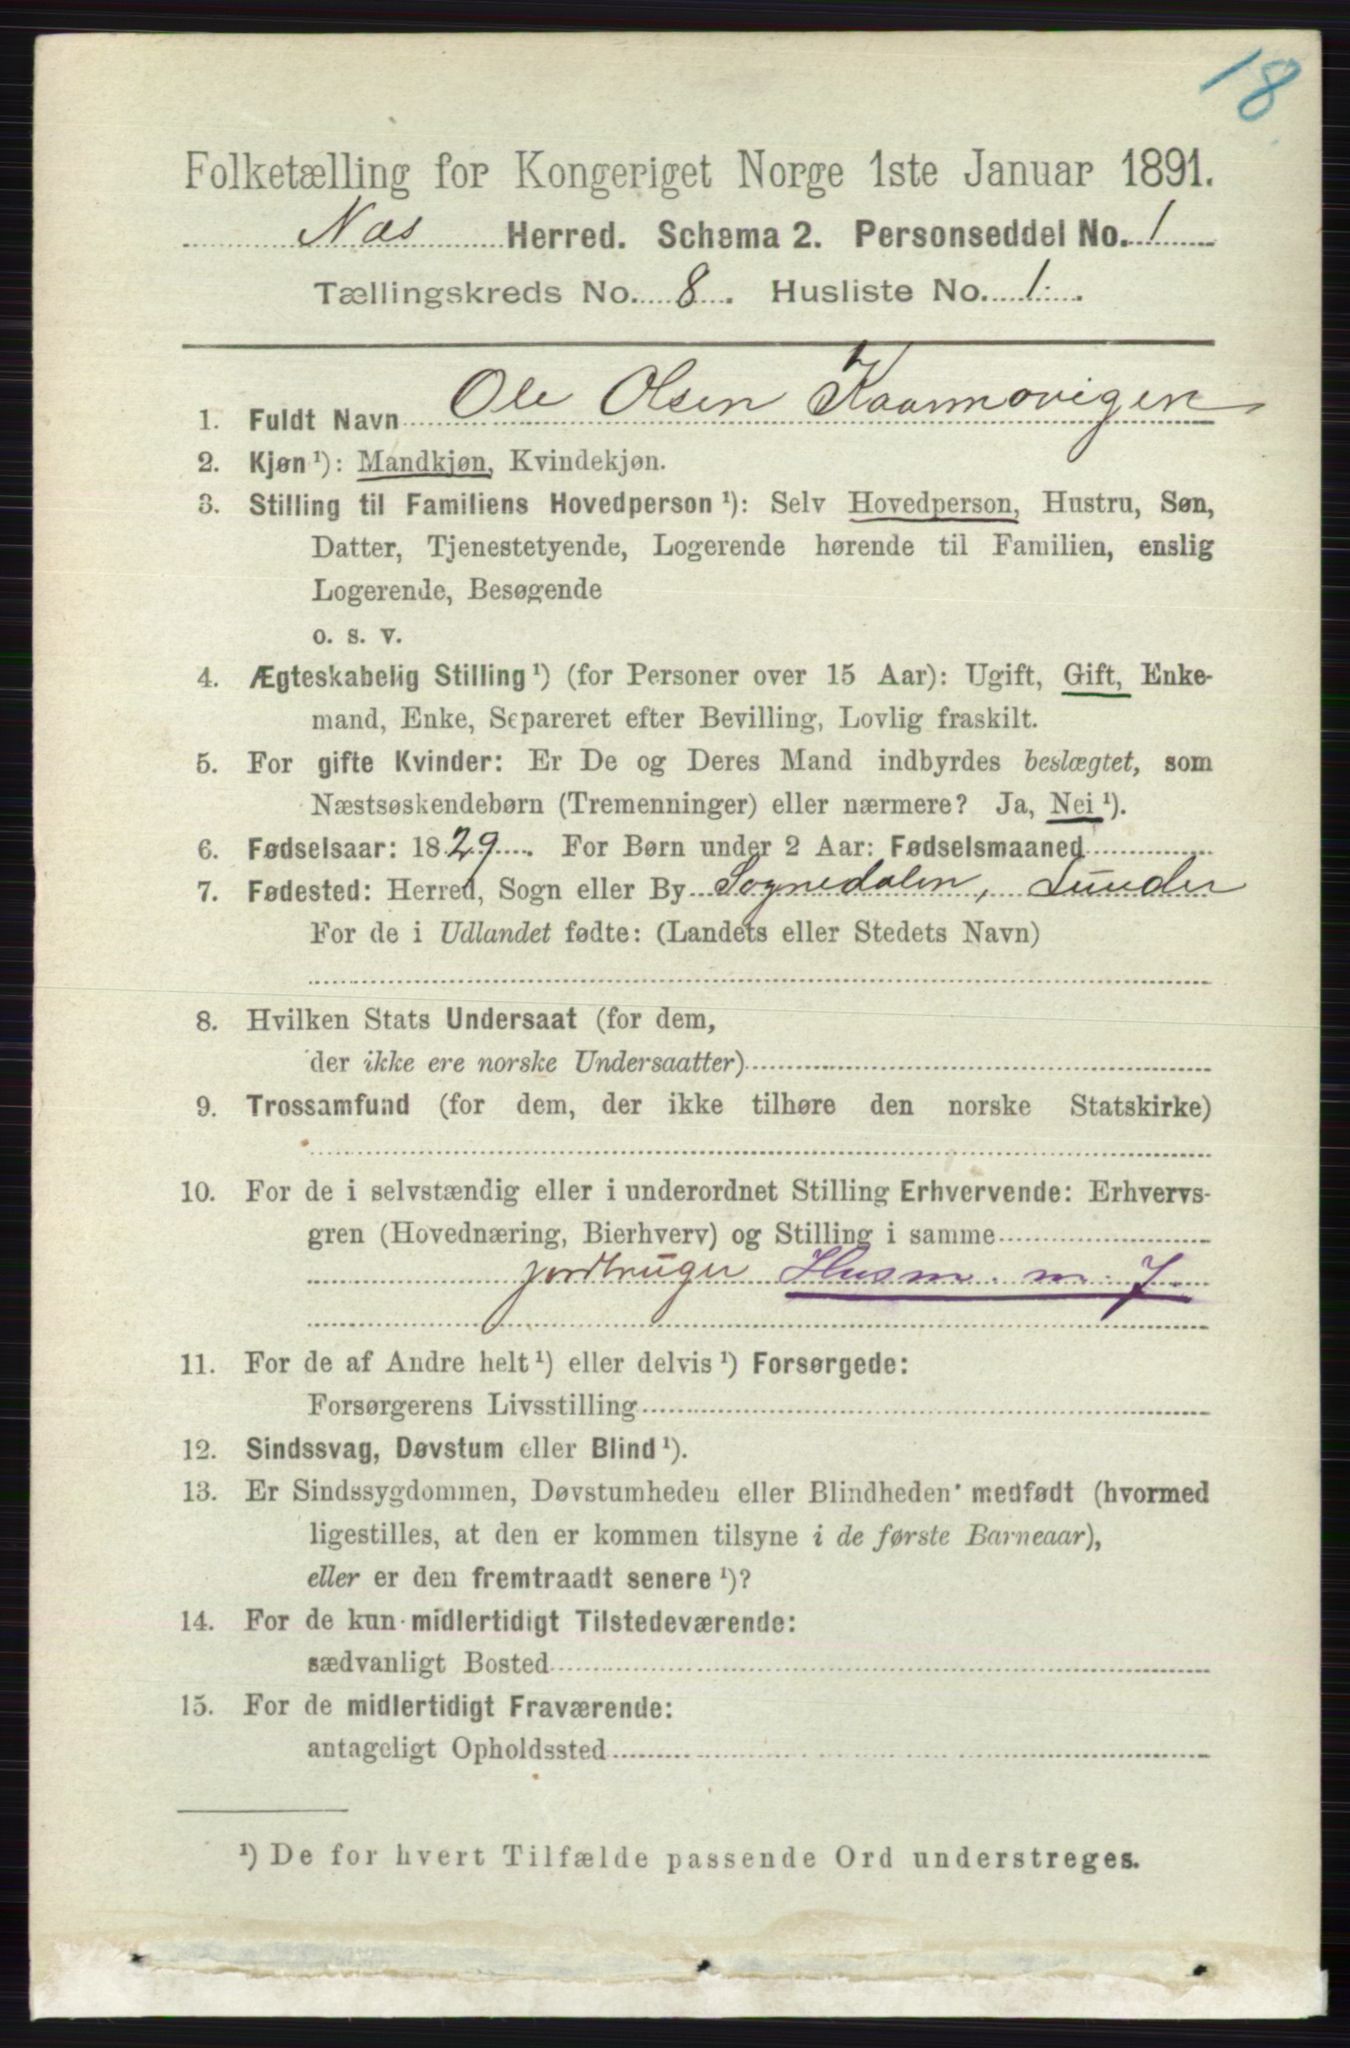 18
Folketælling for Kongeriget Norge 1ste Januar 1891.
Næs Herred. Schema 2. Personseddel No. 1
Tællingskreds No. 8. Husliste No. 1.
1. Fuldt Navn Ole Olsen Kaarmovigen
2. Kjøn ¹): Mandkjøn, Kvindekjøn.
3. Stilling til Familiens Hovedperson ¹): Selv Hovedperson, Hustru, Søn,
Datter, Tjenestetyende, Logerende hørende til Familien, enslig
Logerende, Besøgende
o. s. v.
4. Ægteskabelig Stilling ¹) (for Personer over 15 Aar): Ugift, Gift, Enke-
mand, Enke, Separeret efter Bevilling, Lovlig fraskilt.
5. For gifte Kvinder: Er De og Deres Mand indbyrdes beslægtet, som
Næstsøskendebørn (Tremenninger) eller nærmere? Ja, Nei ¹).
6. Fødselsaar: 1829. For Børn under 2 Aar: Fødselsmaaned
7. Fødested: Herred, Sogn eller By Sognedalen, Lunder
For de i Udlandet fødte: (Landets eller Stedets Navn)
8. Hvilken Stats Undersaat (for dem,
der ikke ere norske Undersaatter)
9. Trossamfund (for dem, der ikke tilhøre den norske Statskirke)
10. For de i selvstændig eller i underordnet Stilling Erhvervende: Erhvervs-
gren (Hovednæring, Bierhverv) og Stilling i samme
jordbruger Husm. m. J.
11. For de af Andre helt ¹) eller delvis ¹) Forsørgede:
Forsørgerens Livsstilling
12. Sindssvag, Døvstum eller Blind ¹).
13. Er Sindssygdommen, Døvstumheden eller Blindheden medfødt (hvormed
ligestilles, at den er kommen tilsyne i de første Barneaar),
eller er den fremtraadt senere ¹)?
14. For de kun midlertidigt Tilstedeværende:
sædvanligt Bosted
15. For de midlertidigt Fraværende:
antageligt Opholdssted
¹) De for hvert Tilfælde passende Ord understreges.